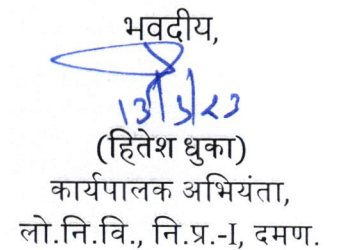 भवदीय,
13/3/23
(हितेश धुका)
कार्यपालक अभियंता,
लो.नि.वि., नि.प्र.-I, दमण.